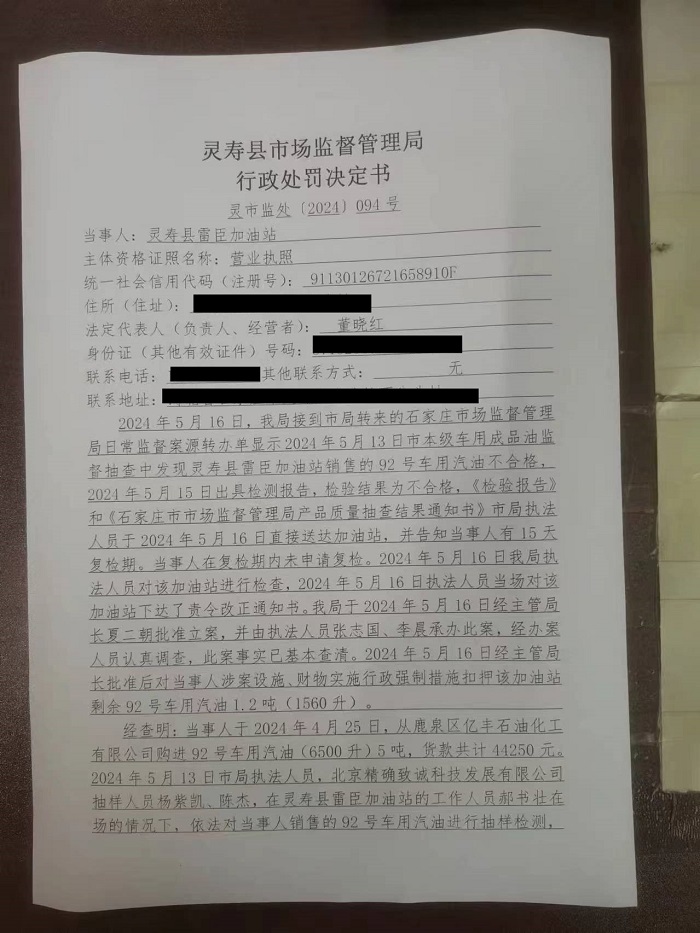 灵寿县市场监督管理局
行政处罚决定书
灵市监处〔2024〕094号
当事人：灵寿县雷臣加油站
主体资格证照名称：营业执照
统一社会信用代码（注册号）：91130126721658910F
住所（住址）：
法定代表人（负责人、经营者）：董晓红
身份证（其他有效证件）号码：
联系电话： 其他联系方式：无
联系地址：
2024年5月16日，我局接到市局转来的石家庄市场监督管理
局日常监督案源转办单显示2024年5月13日市本级车用成品油监
督抽查中发现灵寿县雷臣加油站销售的92号车用汽油不合格，
2024年5月15日出具检测报告，检验结果为不合格，《检验报告》
和《石家庄市市场监督管理局产品质量抽查结果通知书》市局执法
人员于2024年5月16日直接送达加油站，并告知当事人有15天
复检期。当事人在复检期内未申请复检。2024年5月16日我局执
法人员对该加油站进行检查，2024年5月16日执法人员当场对该
加油站下达了责令改正通知书。我局于2024年5月16日经主管局
长夏二朝批准立案，并由执法人员张志国、李晨承办此案，经办案
人员认真调查，此案事实已基本查清。2024年5月16日经主管局
长批准后对当事人涉案设施、财物实施行政强制措施扣押该加油站
剩余92号车用汽油1.2吨（1560升）。
经查明：当事人于2024年4月25日，从鹿泉区亿丰石油化工
有限公司购进92号车用汽油（6500升）5吨，货款共计44250元。
2024年5月13日市局执法人员，北京精确致诚科技发展有限公司
抽样人员杨紫凯、陈杰，在灵寿县雷臣加油站的工作人员郝书壮在
场的情况下，依法对当事人销售的92号车用汽油进行抽样检测，